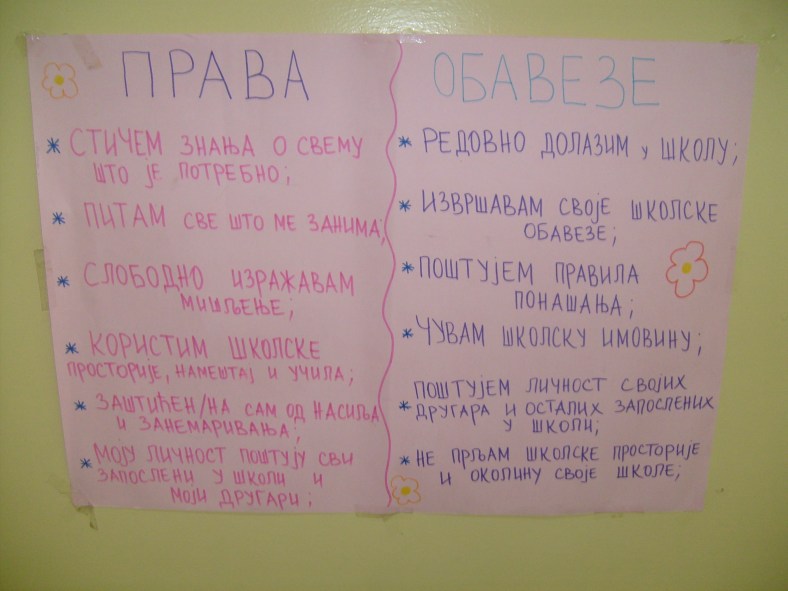 ПРАВА
* СТИЧЕМ ЗНАЊА О СВЕМУ
ШТО ЈЕ ПОТРЕБНО;
* ПИТАМ СВЕ ШТО МЕ ЗАНИМА;
* СЛОБОДНО ИЗРАЖАВАМ
МИШЉЕЊЕ;
* КОРИСТИМ ШКОЛСКЕ
ПРОСТОРИЈЕ, НАМЕШТАЈ И УЧИЛА;
* ЗАШТИЋЕН/НА САМ ОД НАСИЉА
И ЗАНЕМАРИВАЊА;
* МОЈУ ЛИЧНОСТ ПОШТУЈУ СВИ
ЗАПОСЛЕНИ У ШКОЛИ И
МОЈИ ДРУГАРИ;
ОБАВЕЗЕ
* РЕДОВНО ДОЛАЗИМ У ШКОЛУ;
* ИЗВРШАВАМ СВОЈЕ ШКОЛСКЕ
ОБАВЕЗЕ;
* ПОШТУЈЕМ ПРАВИЛА
ПОНАШАЊА;
* ЧУВАМ ШКОЛСКУ ИМОВИНУ;
ПОШТУЈЕМ ЛИЧНОСТ СВОЈИХ
* ДРУГАРА И ОСТАЛИХ ЗАПОСЛЕНИХ
У ШКОЛИ;
* НЕ ПРЉАМ ШКОЛСКЕ ПРОСТОРИЈЕ
И ОКОЛИНУ СВОЈЕ ШКОЛЕ;